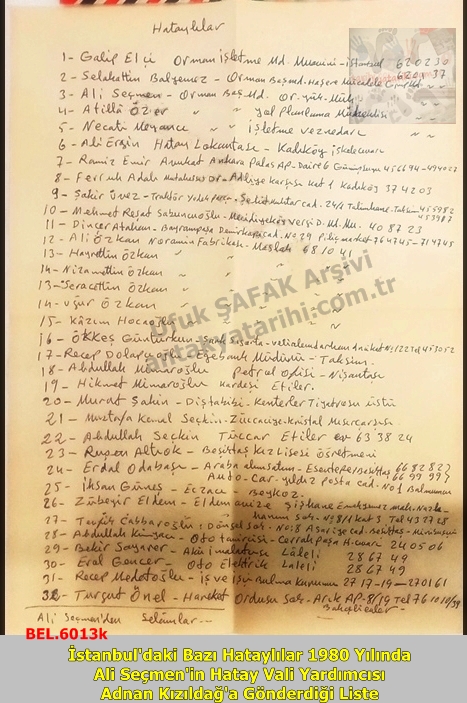 Hataylılar
1- Galip Elçi Orman işletme Md. Muavini - istanbul 620230
2- Selahattin Balşemez - Orman Başmd. Haşere Mücadele Grup Md. 6209 37
3- Ali Seçmen - Orman Baş Md. Or. yük. Müh.
4- Atillâ Özer " " yol Planlama Mühendisi
5- Necati " " işletme veznedarı
6- Ali Ergin Hatay Lokantası - Kadıköy iskelecivarı
7- Ramiz Emir Avukat Ankara Palas AP-Daire 6 Gümüşsuyu 456694-494027
8- Ferruh Adalı or- Adliye karşısı kat 1 Kadıköy 374203
9- Şakir Üvez - Traktör Yedek Parça - Şehit Muhtar cad. 24/1 Talimhane-Taksim 455982
453987
10- Mehmet Reşat Sabuncuoğlu - Mecidiyeköy Vergi D. Md. Mu. 408723
11- Dinçer Atahan - Bayrampaşa Demirkapı cad. No: 29 764745-714745
12- Ali Özkan Noramin Fabrikası Maslak 681041
13- Hayrettin Özkan " " "
14- Nizamettin Özkan " " "
13- Seracettin Özkan " " "
14- Uğur Özkan " " "
15- Kâzım Hocaoğlu " " "
16- Ökkeş Güntürkün - Şark Sigorta - 453052
17- Recep Dolaroğlu - Egebank Müdürü - Taksim.
18- Abdullah Mimaroğlu Petrol Ofisi - Nişantaşı
19- Hikmet Mimaroğlu Kardeşi Etiler.
20- Murat Şahin - Diştabibi - Kenterler Tiyatrosu üstü
21- Mustafa Kemal Seçkin - Züccaciye - kristal Mısırçarşısı
22- Abdullah Seçkin Tüccar Etiler ev 63 38 24
23- Altıok - Beşiktaş Kız Lisesi öğretmeni
24- Erdal Odabaşı - Araba alım satım - Esentepe/Beşiktaş 668282
Auto-Car-yıldız posta cad. No 1 Balmumcu 669997
25- İhsan Güneş - Eczacı Beykoz.
26- Zübeyir Eldem - Eldem
Hanım Sok. No: 8/1 kat 3 Tel 43 77 28
27- Tevfik Cabbaroğlu: Dönşel sok - No: 8 cad. Beşiktaş -
28- Abdullah Kimyacı - Oto tamircisi - Cerrahpaşa H. civarı 240506
29- Bekir Sayarer - Akü imalatçısı Lâleli 28 67 49
30- Erol Gencer - Oto Elektrik Lâleli 28 67 49
31- Recep - iş ve işçi Bulma Kurumu 27 17 19 - 270161
32- Turgut Önel - Hareket Ordusu Sok- Arık AP-8/19 Tel 76 10 10/39
Bahçelievler
Ali Seçmen'den Selâmlar---
Ufuk ŞAFAK Arşivi
antakyatarihi.com.tr
BEL.6013k
İstanbul'daki Bazı Hataylılar 1980 Yılında
Ali Seçmen'in Hatay Vali Yardımcısı
Adnan Kızıldağ'a Gönderdiği Liste